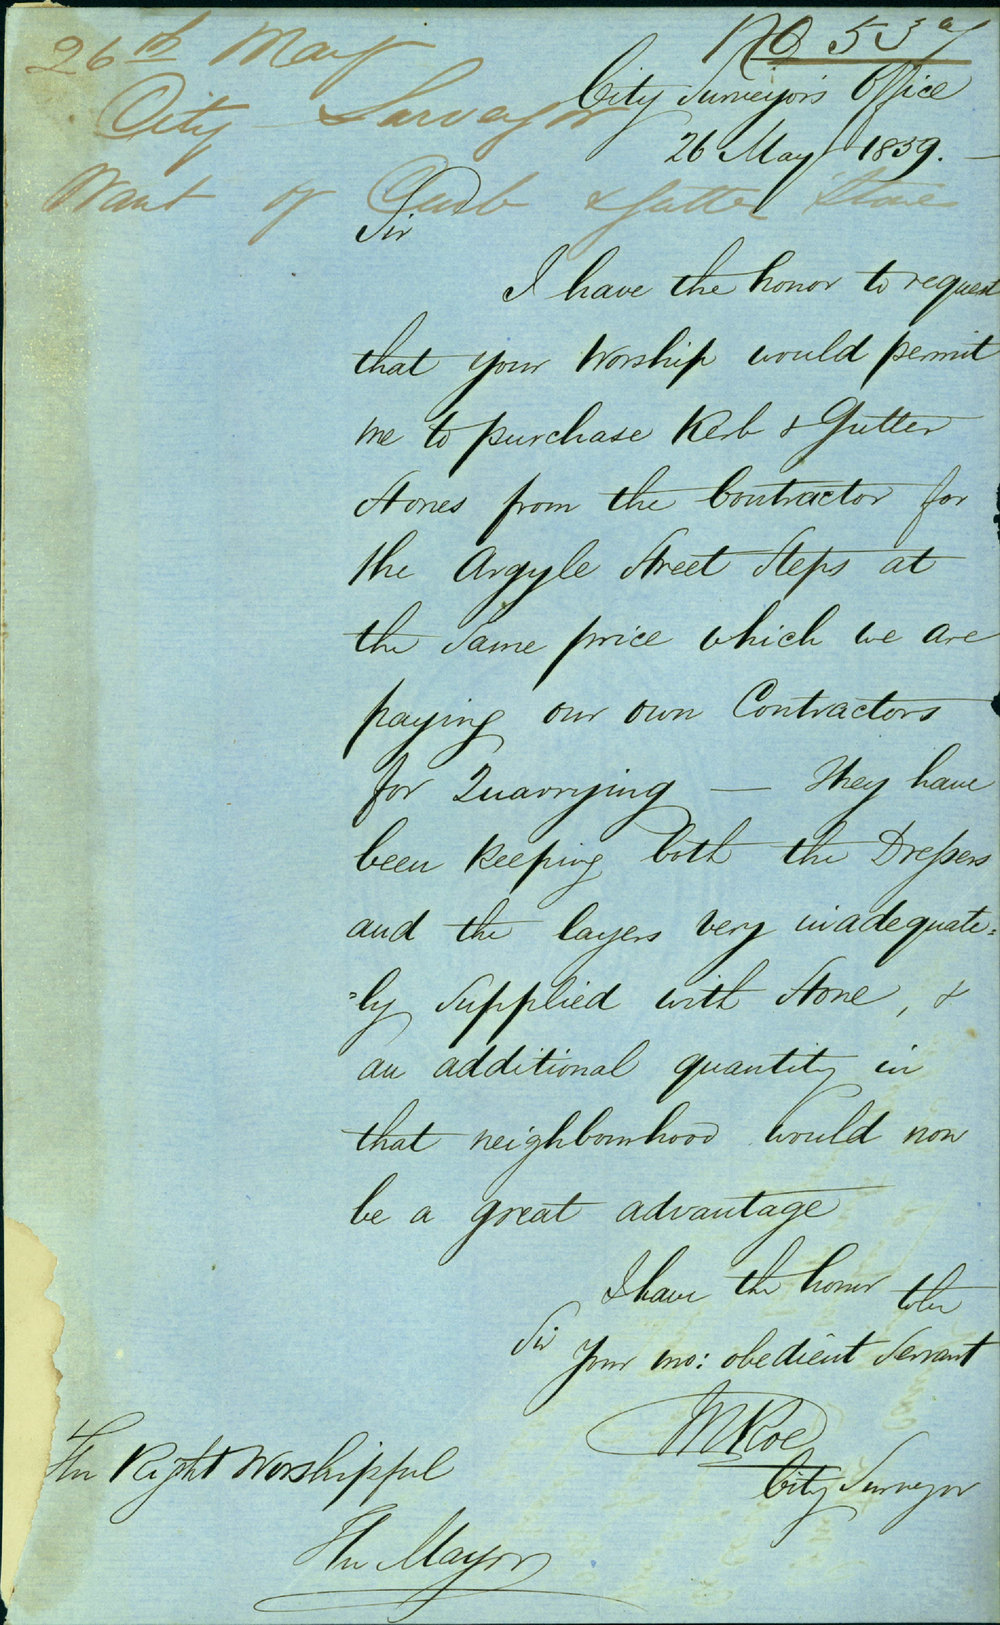 26th May
City Surveyor
Want of Curb & Gutter Stone
No 53
City Surveyor's Office
26 May 1859.
Sir
I have the honor to request
that your Worship would permit
me to purchase Kerb & Gutter
Stones from the Contractor for
the Argyle Street Steps at
the same price which we are
paying our own Contractors
for Quarrying — They have
been keeping both the Dressers
and the layers very inadequate=
=ly supplied with Stone, &
an additional quantity in
that neighbourhood would now
be a great advantage
I have the honor to be
Sir
Your mo: obedient Servant
City Surveyor
The Right Worshipful
The Mayor